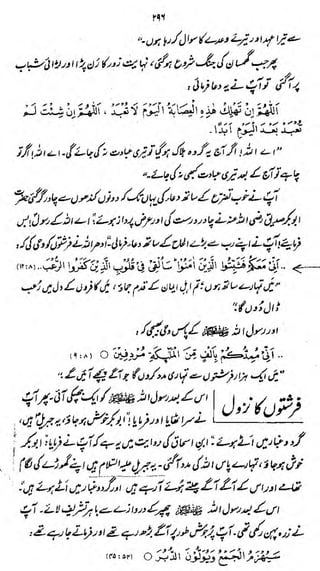 ۲۹۶
سے تیرا عہد اور تیرے وعدے کا سوال کر رہا ہوں۔"
پھر جب گھمسان کی جنگ شروع ہو گئی، نہایت زور کا رَن پڑا اور لڑائی شباب
پر آ گئی تو آپؐ نے یہ دعا فرمائی:
اَللّٰهُمَّ إِنْ تَهْلِكْ هٰذِهِ الْعِصَابَةُ الْيَوْمَ لَا تُعْبَدْ، اَللّٰهُمَّ إِنْ شِئْتَ لَمْ
تُعْبَدْ بَعْدَ الْيَوْمِ أَبَدًا۔
"اے اللہ! اگر آج یہ گروہ ہلاک ہو گیا تو تیری عبادت نہ کی جائے گی۔ اے اللہ! اگر تو
چاہے تو آج کے بعد تیری عبادت کبھی نہ کی جائے۔"
آپؐ نے خوب تضرع کے ساتھ دعا کی یہاں تک کہ دونوں کندھوں سے چادر گر گئی۔ حضرت
ابوبکر صدیق رضی اللہ عنہ نے چادر درست کی اور عرض پرداز ہوئے: "اے اللہ کے رسول! بس
فرمایئے! آپؐ نے اپنے رب سے بڑے الحاح کے ساتھ دعا فرمالی۔" ادھر اللہ نے فرشتوں کو وحی کی کہ:
.. اَنِّىْ مَعَكُمْ فَثَبِّتُوا الَّذِيْنَ اٰمَنُوْا سَاُلْقِىْ فِىْ قُلُوْبِ الَّذِيْنَ كَفَرُوا الرُّعْبَ.. (۸: ۱۲)
"میں تمہارے ساتھ ہوں، تم اہل ایمان کے قدم جماؤ، میں کافروں کے دل میں رعب
ڈال دوں گا۔"
اور رسول اللہ ﷺ کے پاس وحی بھیجی کہ:
.. اَنِّىْ مُمِدُّكُمْ بِاَلْفٍ مِّنَ الْمَلٰٓئِكَةِ مُرْدِفِيْنَ ○ (۸: ۹)
"میں ایک ہزار فرشتوں سے تمہاری مدد کروں گا جو آگے پیچھے آئیں گے۔"
فرشتوں کا نزول
اس کے بعد رسول اللہ ﷺ کو ایک جھپکی آئی۔ پھر آپؐ
نے سر اٹھایا اور فرمایا: "ابوبکر خوش ہو جاؤ، یہ جبریل ہیں،
گرد و غبار میں اٹے ہوئے۔" ابن اسحاق کی روایت میں یہ ہے کہ آپؐ نے فرمایا: "ابوبکر
خوش ہو جاؤ، تمہارے پاس اللہ کی مدد آ گئی۔ یہ جبریل علیہ السلام ہیں اپنے گھوڑے کی لگام
تھامے اور اس کے آگے آگے چلتے ہوئے آ رہے ہیں اور گرد و غبار میں اٹے ہوئے ہیں"
اس کے بعد رسول اللہ ﷺ چھپر کے دروازے سے باہر تشریف لائے۔ آپؐ
نے زرہ پہن رکھی تھی۔ آپؐ پُرجوش طور پر آگے بڑھ رہے تھے اور فرماتے جا رہے تھے:
سَيُهْزَمُ الْجَمْعُ وَيُوَلُّوْنَ الدُّبُرَ ○ (۵۴: ۴۵)